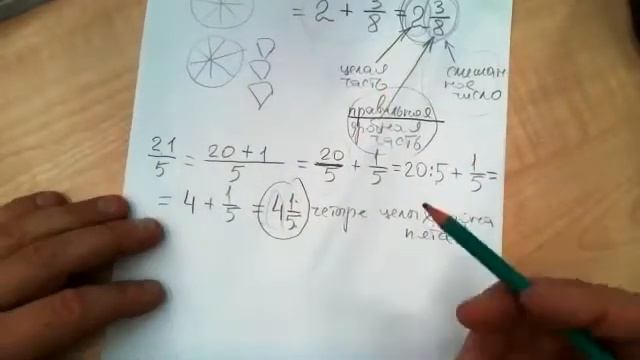 = 2 + 3/8 = 2 3/8
целая часть
смешанное число
правильная
дробная часть
21/5 = (20 + 1)/5 = 20/5 + 1/5 = 20:5 + 1/5 =
= 4 + 1/5 = 4 1/5 четыре целых